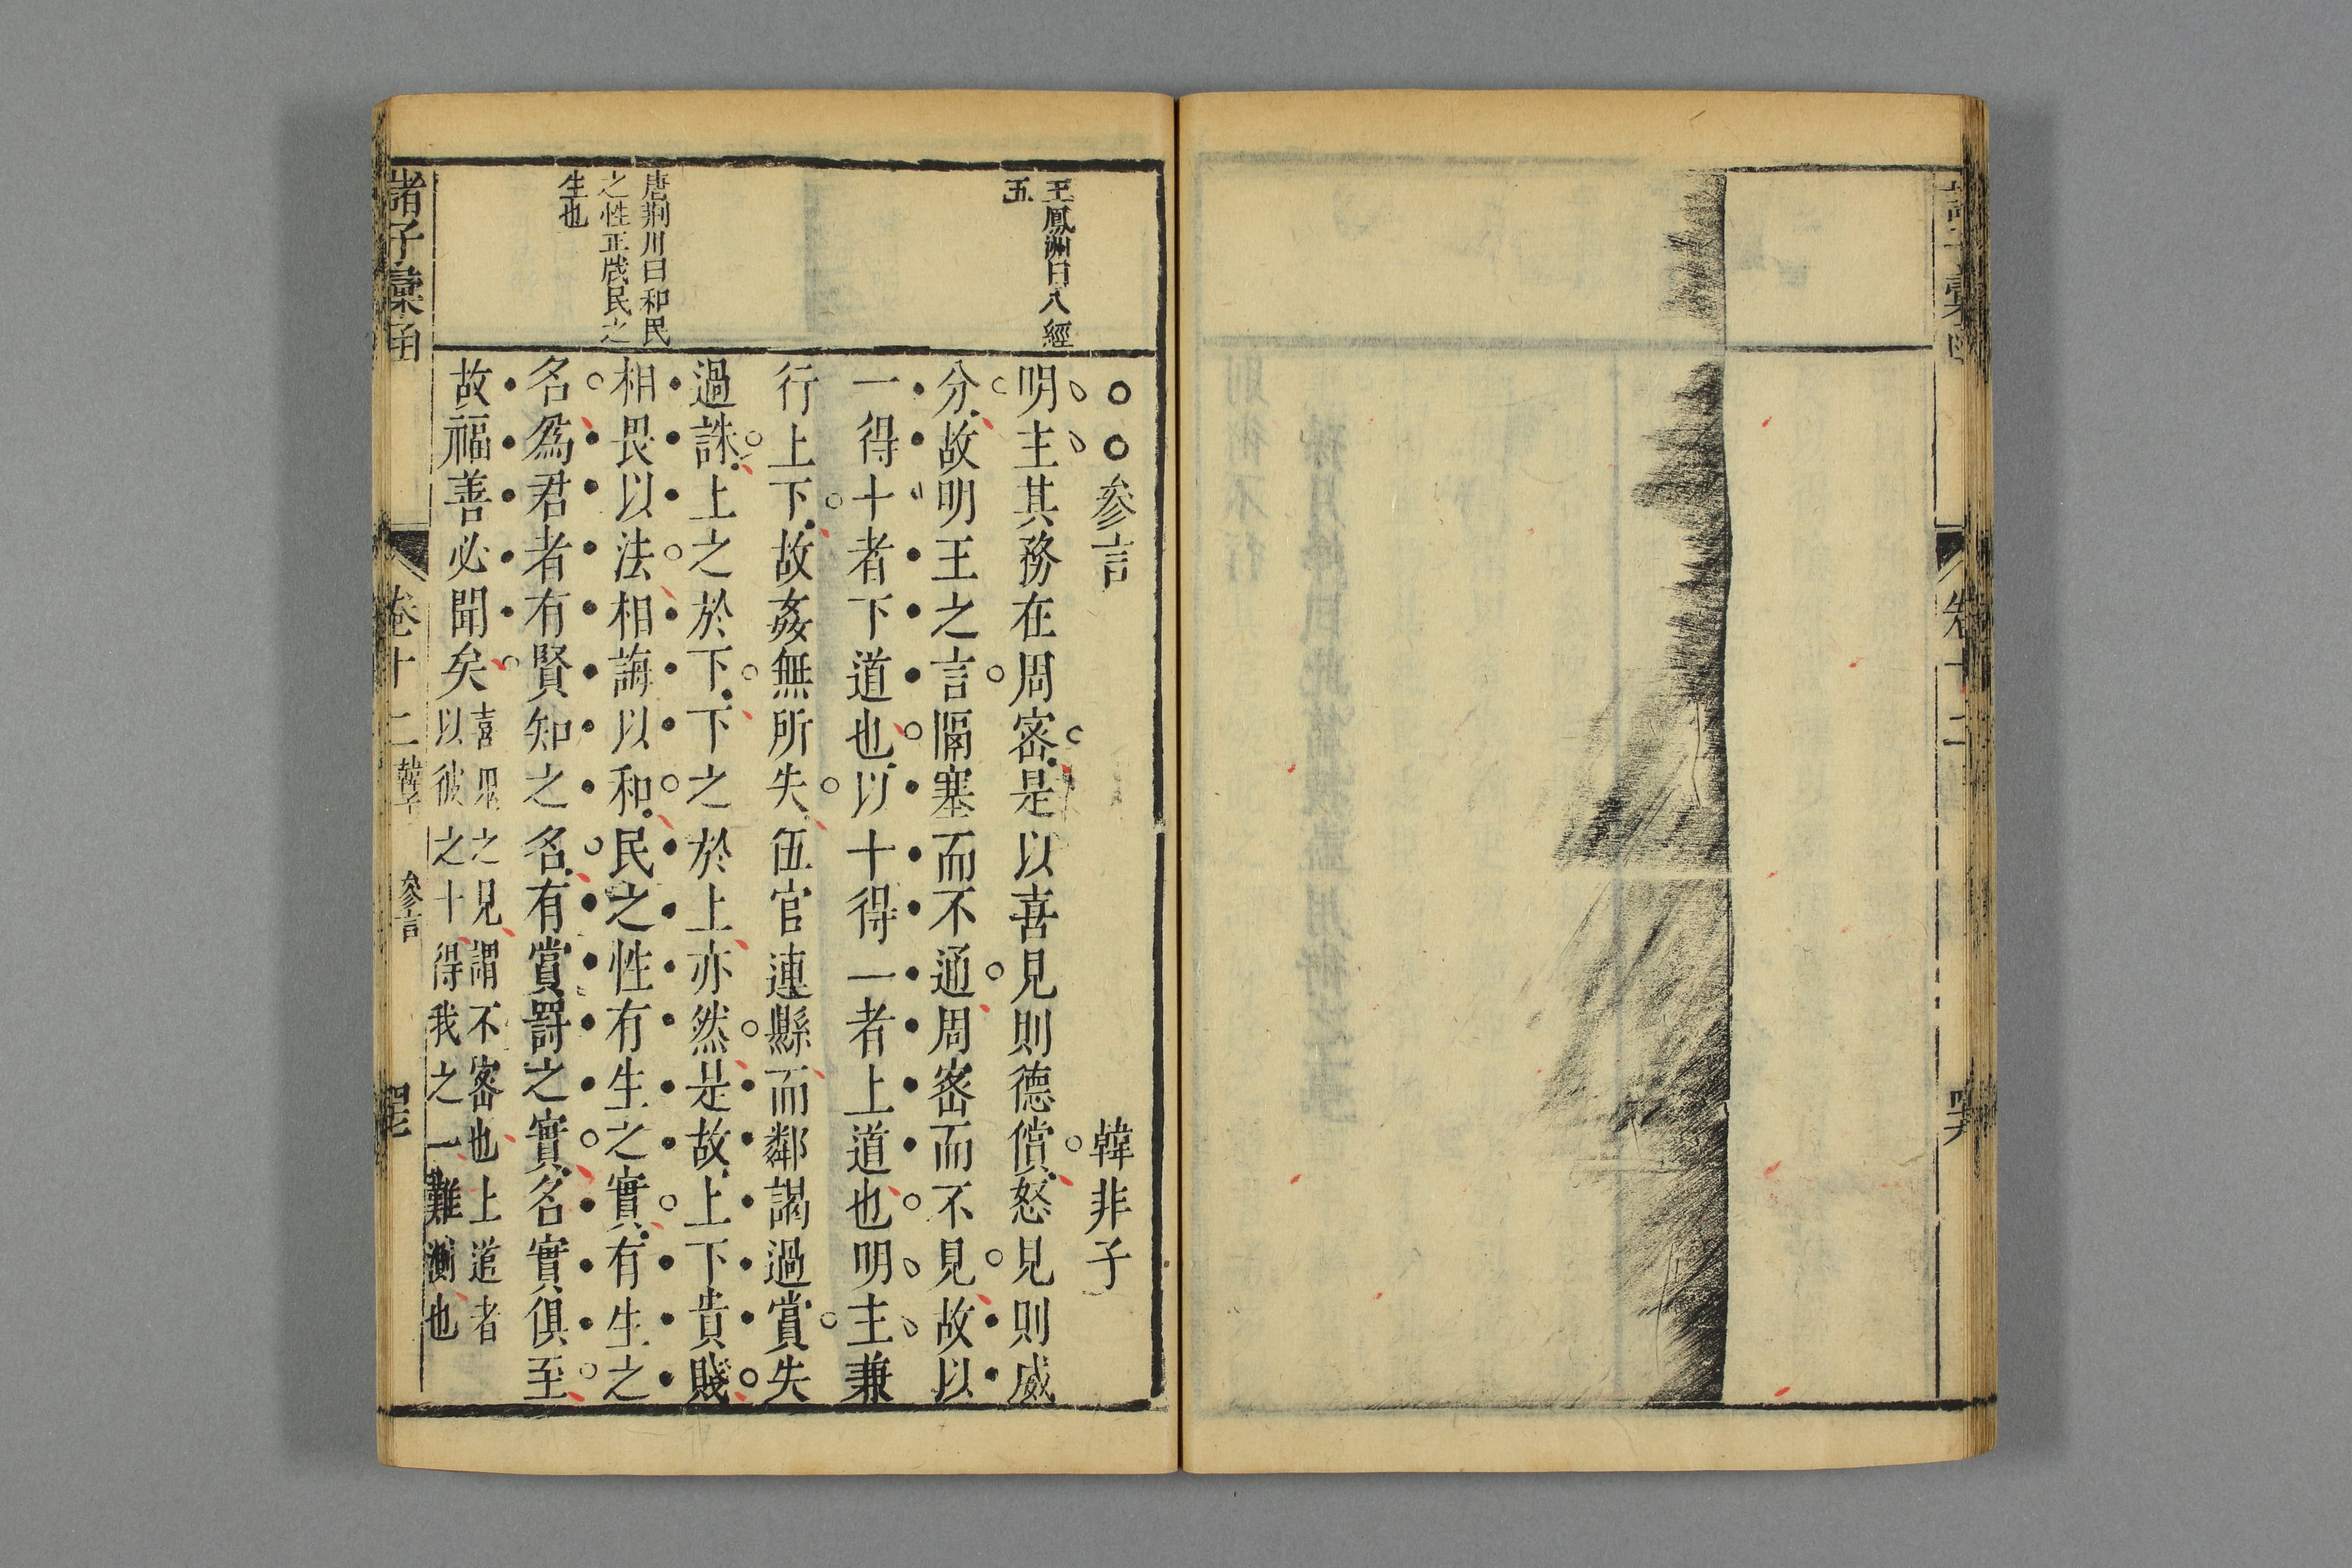 諸子彙函
卷十二
王鳳洲曰八經
五
唐荆川曰和民
之性正戕民之
生也
○○參言 韓非子
明主其務在周密是以喜見則德償怒見則威
分故明王之言隔塞而不通周密而不見故以
一得十者下道也以十得一者上道也明主兼
行上下故姦無所失伍官連縣而鄰謁過賞失
過誅上之於下下之於上亦然是故上下貴賤
相畏以法相誨以和民之性有生之實有生之
名為君者有賢知之名有賞罰之實名實俱至
故福善必聞矣
喜見之見謂不密也上道者
以彼之十得我之一難測也
諸子彙函
卷十二
韓子
參言